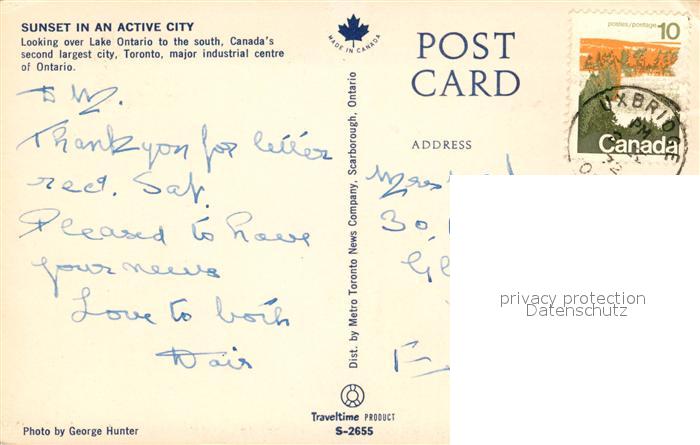 SUNSET IN AN ACTIVE CITY
Looking over Lake Ontario to the south, Canada's
second largest city, Toronto, major industrial centre
of Ontario.
Thank you for letter
rect. Sat.
Pleased to have
your news
Love to both
Photo by George Hunter
MADE IN CANADA
Dist. by Metro Toronto News Company, Scarborough, Ontario
Traveltime PRODUCT
S-2655
POST
CARD
ADDRESS
30
postes/postage 10
Canada
UXBRIDGE
PM
privacy protection
Datenschutz